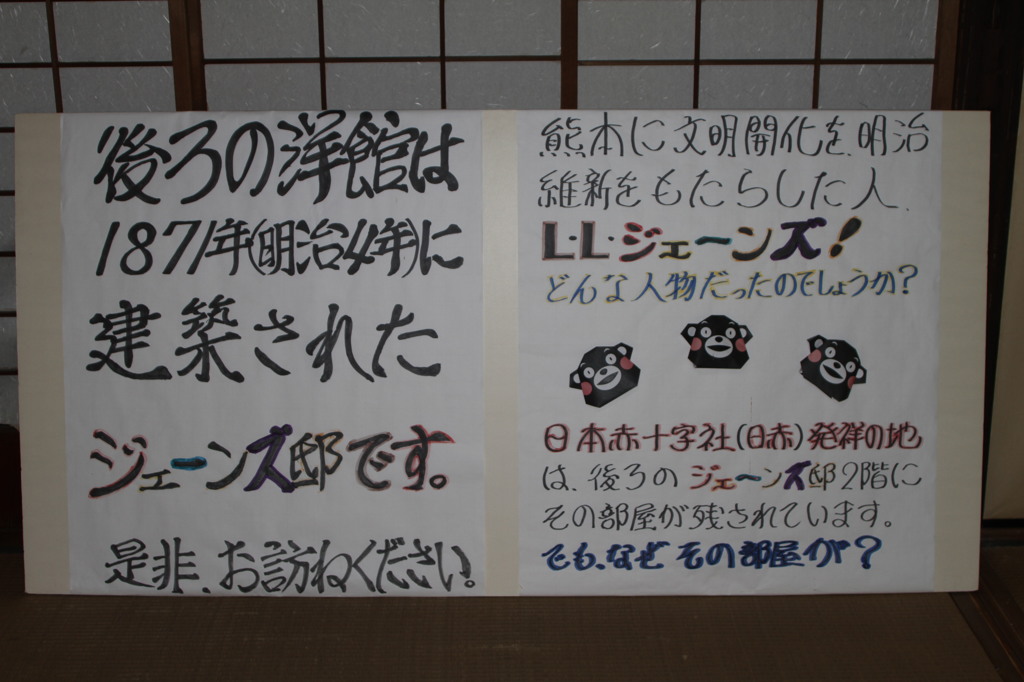 後ろの洋館は
1871年(明治4年)に
建築された
ジェーンズ邸です。
是非、お訪ねください。
熊本に文明開化を、明治
維新をもたらした人、
L・L・ジェーンズ!
どんな人物だったのでしょうか?
日本赤十字社(日赤)発祥の地
は、後ろのジェーンズ邸2階に
その部屋が残されています。
でも、なぜその部屋が?